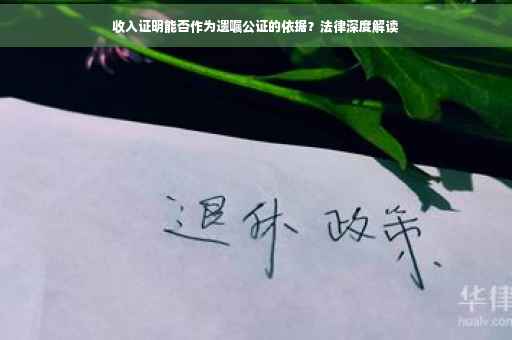 收入证明能否作为遗嘱公证的依据？法律深度解读
退休 政策
华律
hualv.com